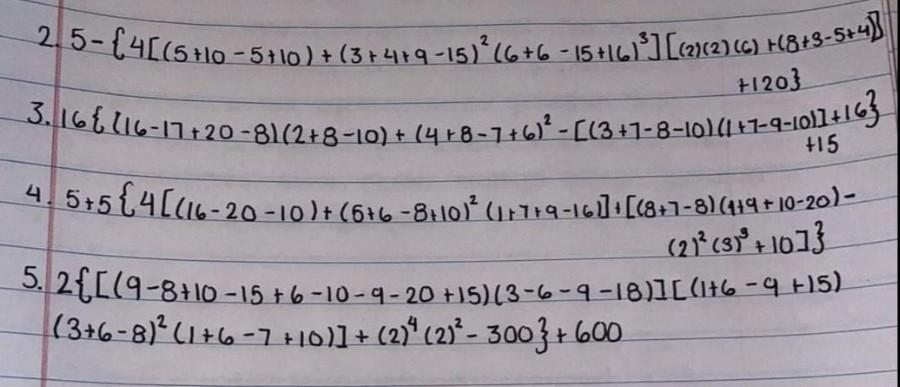 2. 5-{4[(5+10-5+10)+(3+4+9-15)²(6+6-15+16)³][(2)(2)(6)+(8+3-5+4)]
+120}
3. 16{(16-17+20-8)(2+8-10)+(4+8-7+6)²-[(3+7-8-10)(1+7-9-10)]+16}
+15
4. 5+5{4[(16-20-10)+(5+6-8+10)²(1+7+9-16)]+[(8+7-8)(9+9+10-20)-
(2)²(3)³+10]}
5. 2{[(9-8+10-15+6-10-9-20+15)(3-6-9-18)][(1+6-9+15)
(3+6-8)²(1+6-7+10)]+(2)⁴(2)²-300}+600